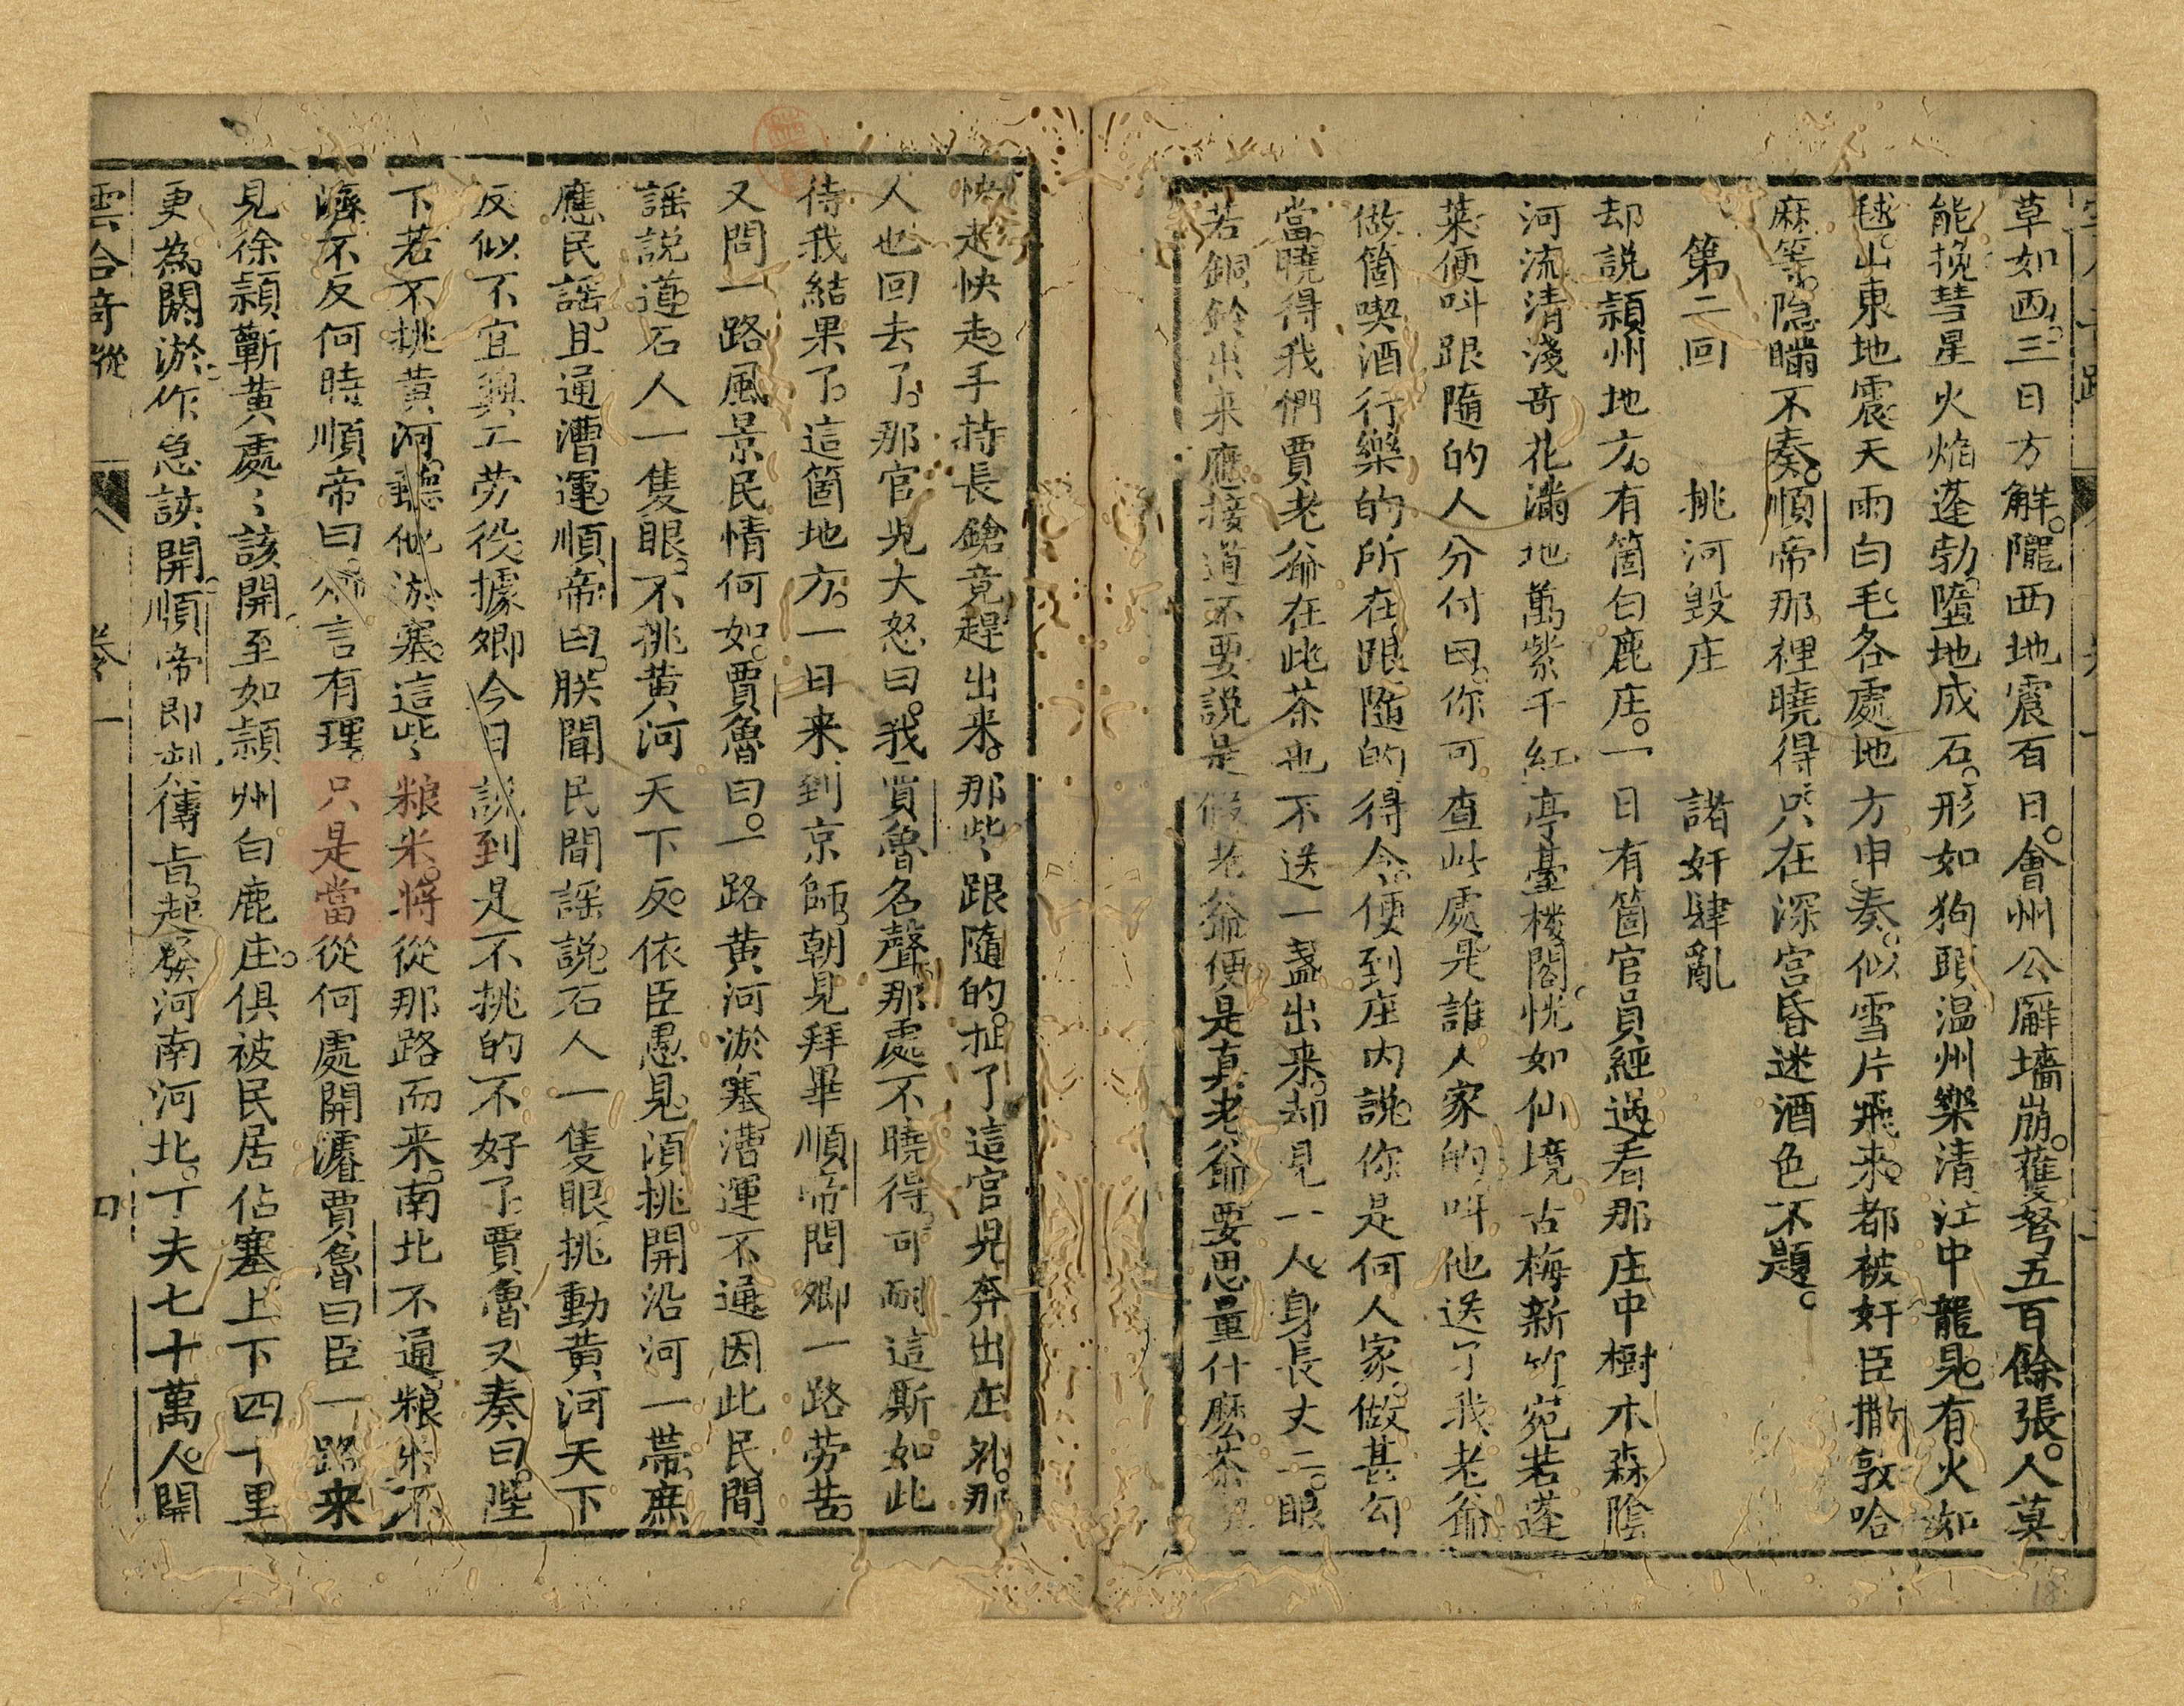 草如西三日方解。隴西地震百日。會州公廨墻崩。獲弩五百餘張。人莫
能挽彗星火焰蓬勃。墮地成石。形如狗頭温州樂清江中龍見有火如
毬。山東地震天雨白毛。各處地方申奏。似雪片飛來。都被奸臣撒敦哈
麻等。隐瞞不奏。順帝那裡曉得只在深宫昏迷酒色不題。
第二回　挑河毀庄　諸奸肆亂
却説頴州地方。有箇白鹿庄。一日有箇官員經過看那庄中樹木森陰
河流清淺奇花滿地萬紫千紅亭臺楼閣。恍如仙境古梅新竹宛若蓬
萊便呌跟隨的人分付曰。你可查此處是誰人家的。呌他送了我老爺
做箇喫酒行樂的所在跟隨的得令。便到庄内說。你是何人家。做甚勾
當。曉得我們賈老爺在此茶也不送一盞出来。却見一人身長丈二。眼
若銅鈴出来應接道不要説是假老爺便是真老爺要思量什麽茶
快走快走。手持長鎗竟趕出来。那些跟隨的。扯了這官見奔出庄外。那
人也回去了。那官見大怒曰。我賈魯名聲那處不曉得。可耐這斯如此
待我結果了。這箇地方。一日来到京師。朝見拜畢順帝問卿一路劳苦。
又問一路風景民情何如。賈魯曰。一路黄河淤塞漕運不通因此民間
謡說道。石人一隻眼。不挑黄河天下反。依臣愚見須挑開沿河一帶。庶
應民謡。且通漕運。順帝曰。朕聞民間謡說石人一隻眼挑動黄河天下
反似不宜興工劳役。據卿今日説到是不挑的不好了。賈魯又奏曰。陛
下若不挑黄河。聽他淤塞。這些粮米。將從那路而来。南北不通。粮米不
濟不反何時順帝曰。公言有理。只是當從何處開濬賈魯曰臣一路来
見徐頴蘄黄處〻該開至如頴州白鹿庄。俱被民居佔塞上下四十里
更為闕淤。作急該開順帝即制傳旨。起發河南河北。丁夫七十萬人。開
雲合奇蹤　卷一　四